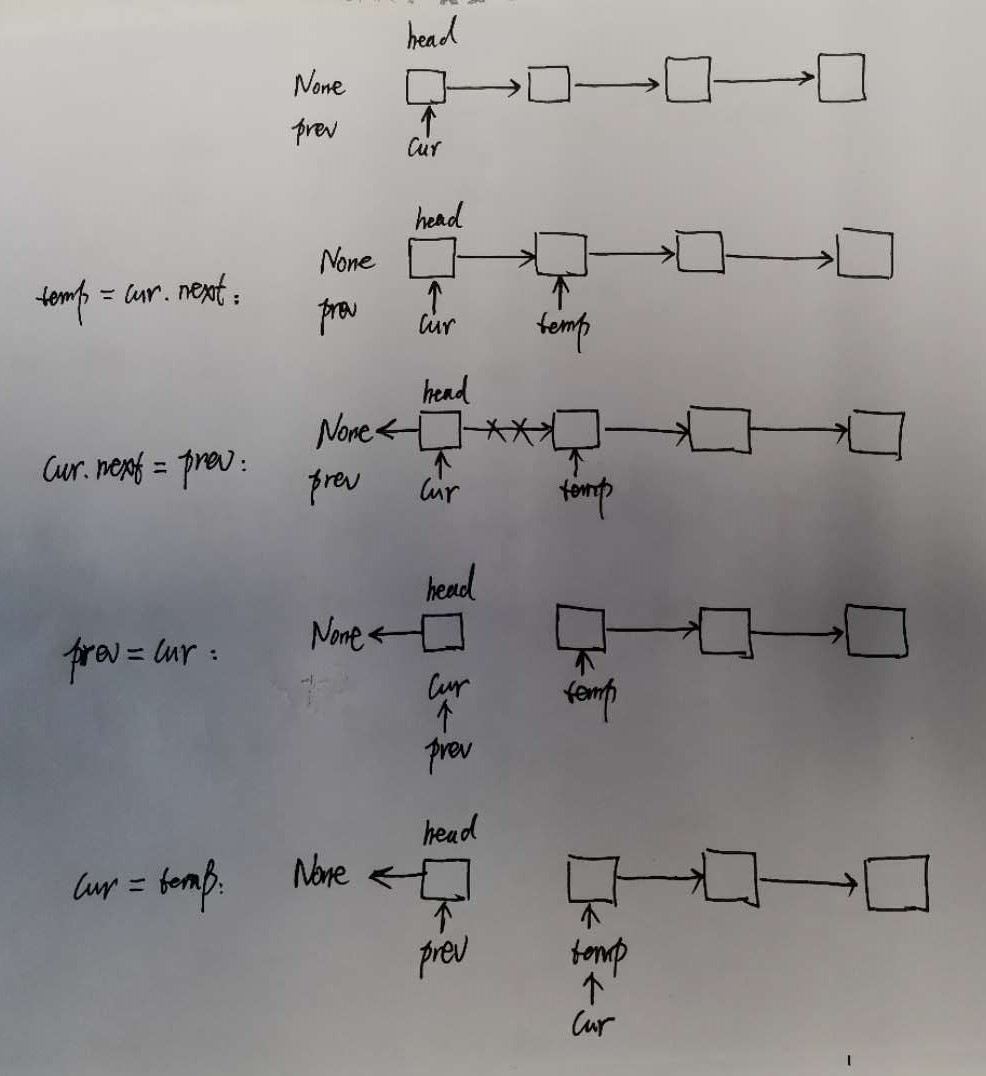 head
None
prev
Cur
head
None
temp = cur.next:
prev
Cur
temp
head
None
Cur.next = prev:
prev
Cur
temp
head
None
prev = Cur:
temp
Cur
prev
head
Cur = temp:
None
prev
temp
Cur